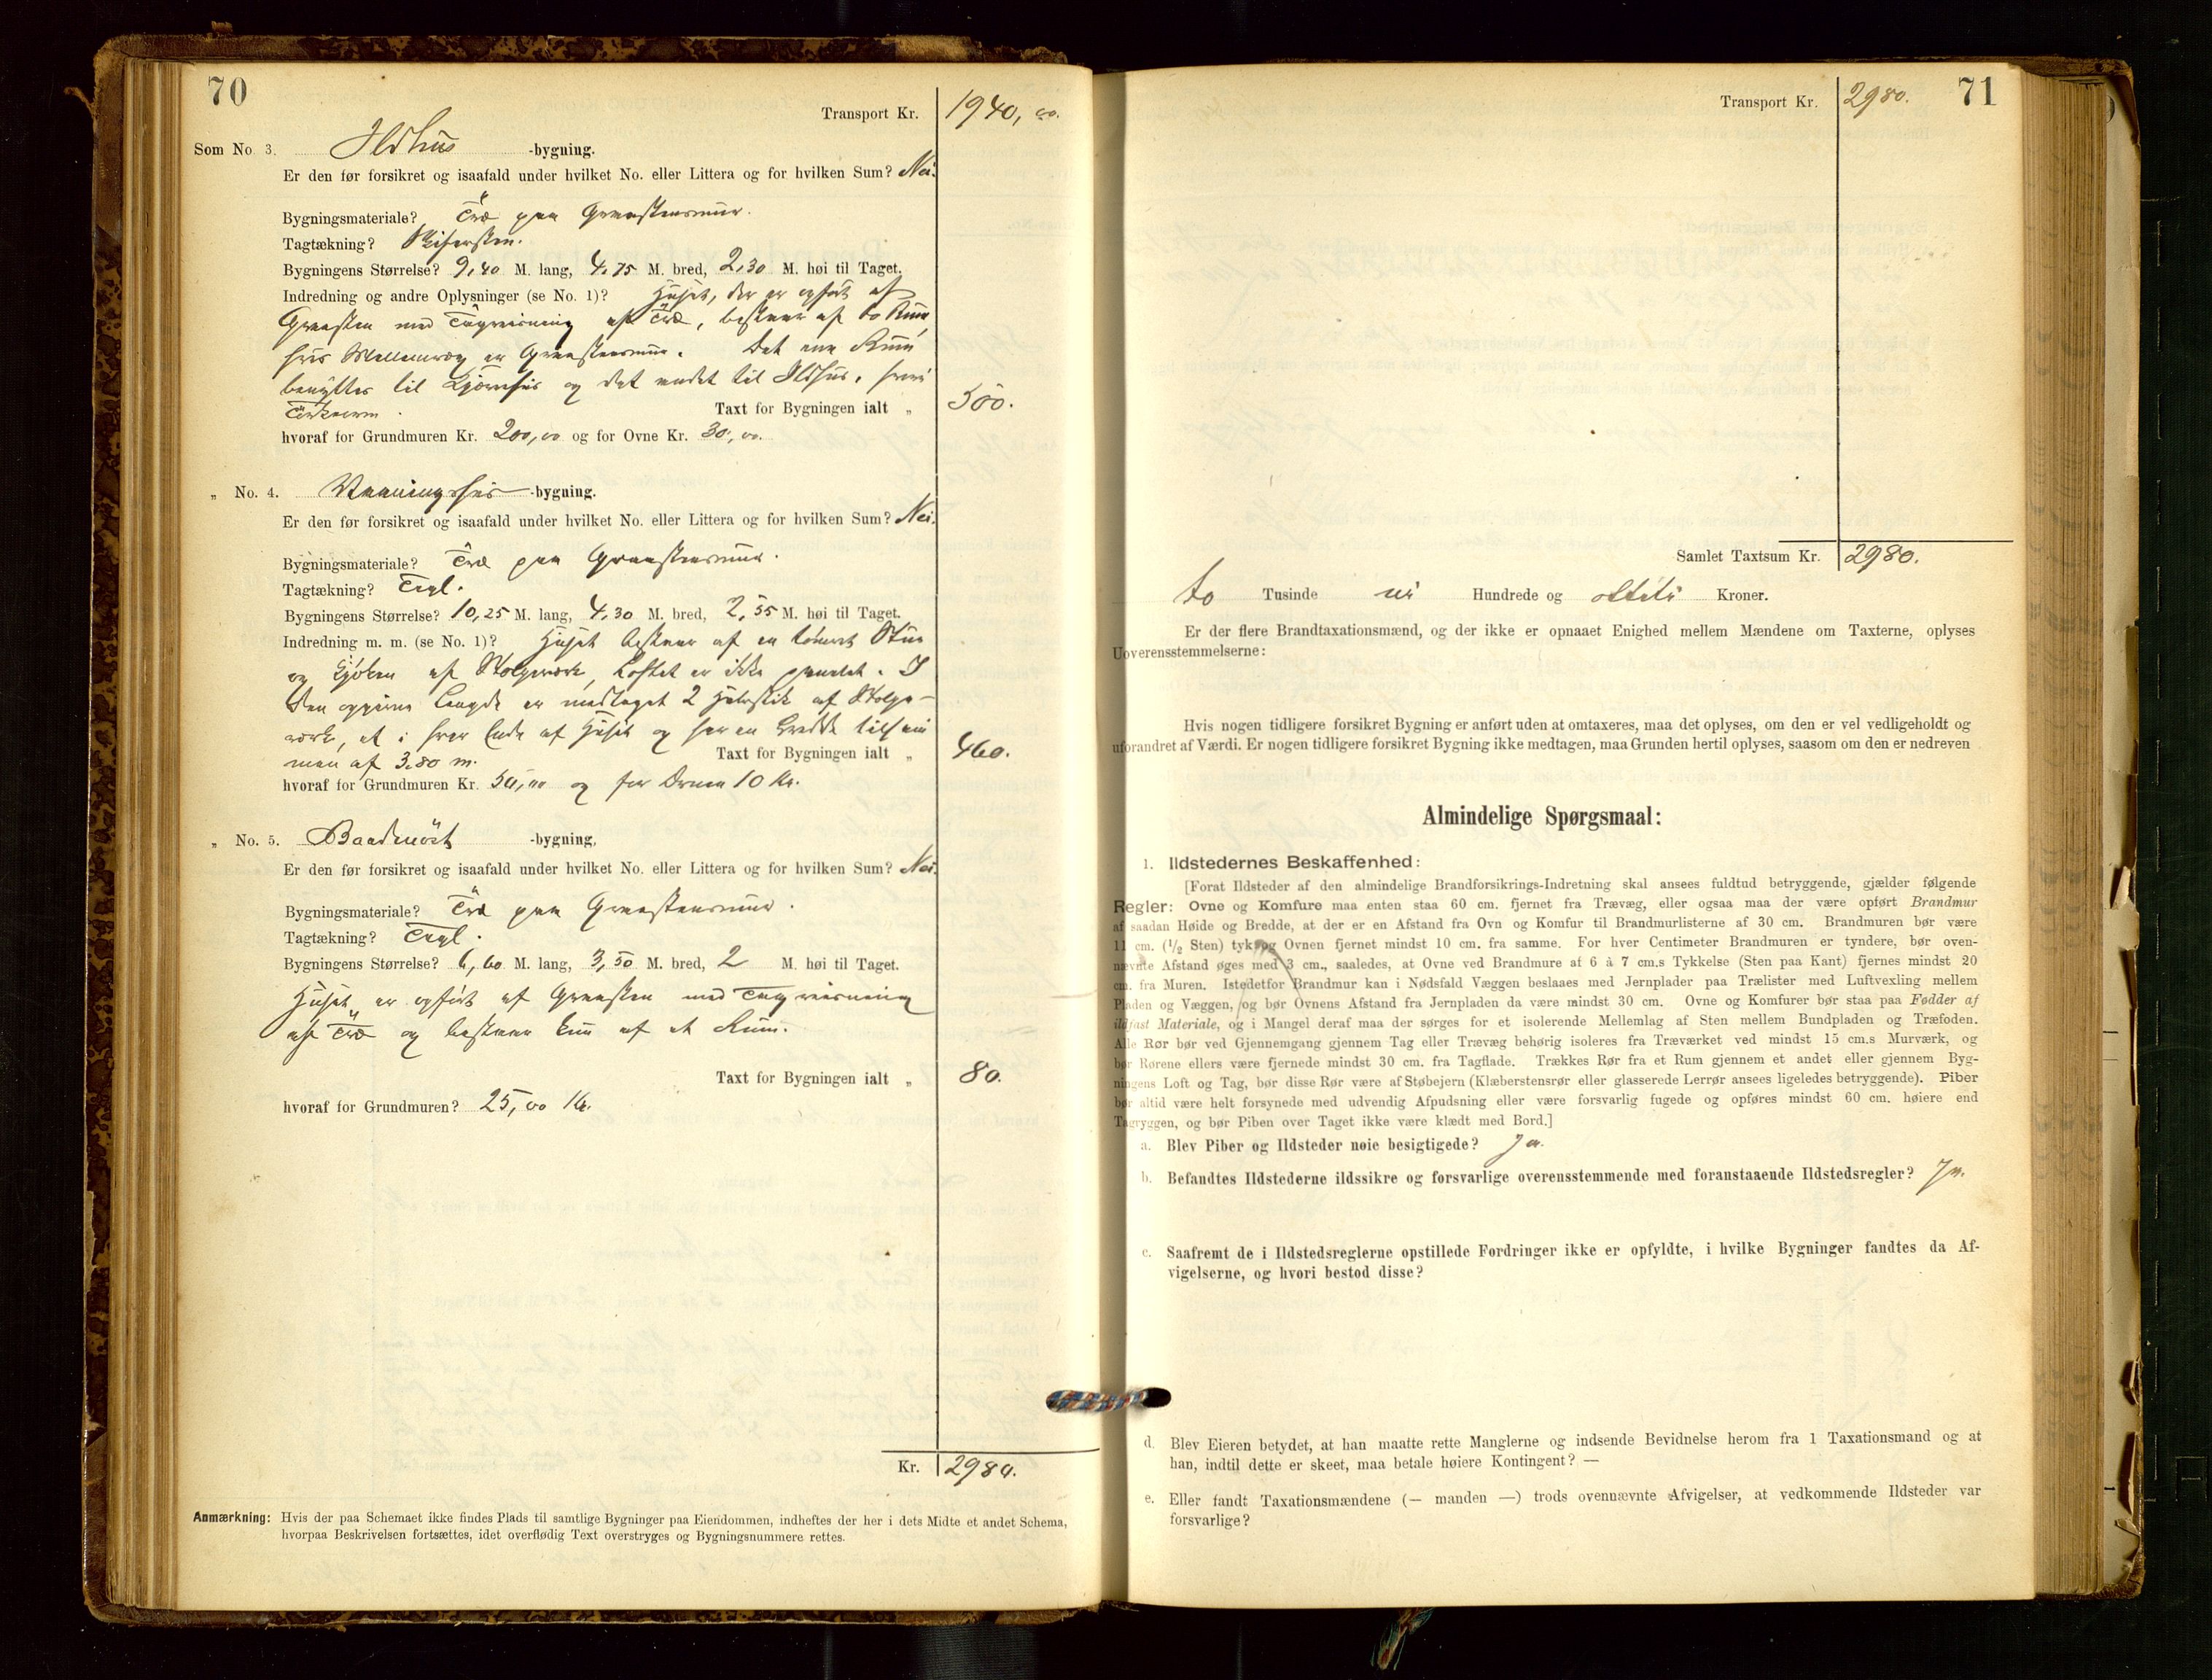 70
Transport Kr. 1940, 00.
Som No. 3. Ildhus -bygning.
Er den før forsikret og isaafald under hvilket No. eller Littera og for hvilken Sum? Nei.
Bygningsmateriale? Træ paa Graastensmur.
Tagtækning? Skifersten.
Bygningens Størrelse? 9,40 M. lang, 4,75 M. bred, 2,30 M. høi til Taget.
Indredning og andre Oplysninger (se No. 1)? Huset, der er opført af
Graasten med Tagreisning af Træ, bestaar af to Rum
hvis Mellemvæg er Graastensmur. Det ene Rum
benyttes til Kjørrehus og det andet til Ildhus, hvori
Taxt for Bygningen ialt „ 500.
hvoraf for Grundmuren Kr. 200,00 og for Ovne Kr. 30,00.
„ No. 4. Vaaningshus -bygning.
Er den før forsikret og isaafald under hvilket No. eller Littera og for hvilken Sum? Nei.
Bygningsmateriale? Træ paa Graastensmur.
Tagtækning? Tegl.
Bygningens Størrelse? 10,25 M. lang, 4,30 M. bred, 2,55 M. høi til Taget.
Indredning m. m. (se No. 1)? Huset bestaar af en tømret Stue
og Kjøken af Stolpeværk, Loftet er ikke panelet. I
den opgivne Længde er medtaget 2 Halvstik af Stolpe-
værk, et i hver Ende af Huset og har en Bredde tilsam
men af 3,80 m. Taxt for Bygningen ialt „ 460.
hvoraf for Grundmuren Kr. 50,00 og for Ovnen 10 Kr.
„ No. 5. Baadnøst -bygning,
Er den før forsikret og isaafald under hvilket No. eller Littera og for hvilken Sum? Nei.
Bygningsmateriale? Træ paa Graastensmur.
Tagtækning? Tegl.
Bygningens Størrelse? 6,60 M. lang, 3,50 M. bred, 2 M. høi til Taget.
Huset er opført af Graasten med Tagreisning
af Træ og bestaar kun af et Rum.
Taxt for Bygningen ialt „ 80.
hvoraf for Grundmuren? 25,00 Kr.
Kr. 2980.
Anmærkning: Hvis der paa Schemaet ikke findes Plads til samtlige Bygninger paa Eiendommen, indheftes der her i dets Midte et andet Schema,
hvorpaa Beskrivelsen fortsættes, idet overflødig Text overstryges og Bygningsnummere rettes.
71
Transport Kr. 2980.
Samlet Taxtsum Kr. 2980.
to Tusinde ni Hundrede og otteti Kroner.
Er der flere Brandtaxationsmænd, og der ikke er opnaaet Enighed mellem Mændene om Taxterne, oplyses
Uoverensstemmelserne:
Hvis nogen tidligere forsikret Bygning er anført uden at omtaxeres, maa det oplyses, om den er vel vedligeholdt og
uforandret af Værdi. Er nogen tidligere forsikret Bygning ikke medtagen, maa Grunden hertil oplyses, saasom om den er nedreven
Almindelige Spørgsmaal:
1. Ildstedernes Beskaffenhed:
[Forat Ildsteder af den almindelige Brandforsikrings-Indretning skal ansees fuldtud betryggende, gjælder følgende
Regler: Ovne og Komfure maa enten staa 60 cm. fjernet fra Trævæg, eller ogsaa maa der være opført Brandmur
af saadan Høide og Bredde, at der er en Afstand fra Ovn og Komfur til Brandmurlisterne af 30 cm. Brandmuren bør være
11 cm. (1/2 Sten) tyk og Ovnen fjernet mindst 10 cm. fra samme. For hver Centimeter Brandmuren er tyndere, bør oven-
nævnte Afstand øges med 3 cm., saaledes, at Ovne ved Brandmure af 6 à 7 cm.s Tykkelse (Sten paa Kant) fjernes mindst 20
cm. fra Muren. Istedetfor Brandmur kan i Nødsfald Væggen beslaaes med Jernplader paa Trælister med Luftvexling mellem
Pladen og Væggen, og bør Ovnens Afstand fra Jernpladen da være mindst 30 cm. Ovne og Komfurer bør staa paa Fødder af
ildfast Materiale, og i Mangel deraf maa der sørges for et isolerende Mellemlag af Sten mellem Bundpladen og Træfoden.
Alle Rør bør ved Gjennemgang gjennem Tag eller Trævæg behørig isoleres fra Træværket ved mindst 15 cm.s Murværk, og
bør Rørene ellers være fjernede mindst 30 cm. fra Tagflade. Trækkes Rør fra et Rum gjennem et andet eller gjennem Byg-
ningens Loft og Tag, bør disse Rør være af Støbejern (Klæberstensrør eller glasserede Lerrør ansees ligeledes betryggende). Piber
bør altid være helt forsynede med udvendig Afpudsning eller være forsvarlig fugede og opføres mindst 60 cm. høiere end
Tagryggen, og bør Piben over Taget ikke være klædt med Bord.]
a. Blev Piber og Ildsteder nøie besigtigede? Ja.
b. Befandtes Ildstederne ildssikre og forsvarlige overensstemmende med foranstaaende Ildstedsregler? Ja.
c. Saafremt de i Ildstedsreglerne opstillede Fordringer ikke er opfyldte, i hvilke Bygninger fandtes da Af-
vigelserne, og hvori bestod disse?
d. Blev Eieren betydet, at han maatte rette Manglerne og indsende Bevidnelse herom fra 1 Taxationsmand og at
han, indtil dette er skeet, maa betale høiere Kontingent? —
e. Eller fandt Taxationsmændene (— manden —) trods ovennævnte Afvigelser, at vedkommende Ildsteder var
forsvarlige?